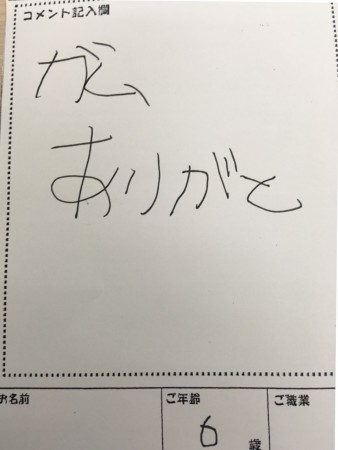 コメント記入欄
がん、
ありがと
お名前
ご年齢
ご職業
6 歳